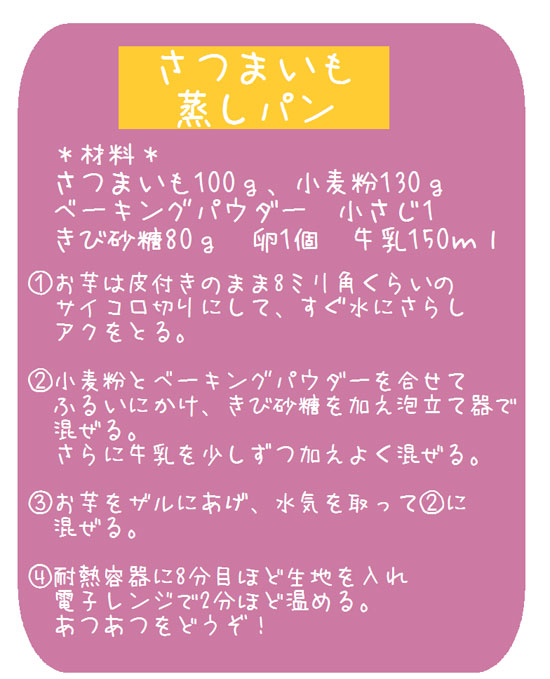 さつまいも
蒸しパン
＊材料＊
さつまいも100ｇ、小麦粉130ｇ
ベーキングパウダー　小さじ1
きび砂糖80ｇ　卵1個　牛乳150ｍｌ
①お芋は皮付きのまま8ミリ角くらいの
サイコロ切りにして、すぐ水にさらし
アクをとる。
②小麦粉とベーキングパウダーを合せて
ふるいにかけ、きび砂糖を加え泡立て器で
混ぜる。
さらに牛乳を少しずつ加えよく混ぜる。
③お芋をザルにあげ、水気を取って②に
混ぜる。
④耐熱容器に8分目ほど生地を入れ
電子レンジで2分ほど温める。
あつあつをどうぞ！